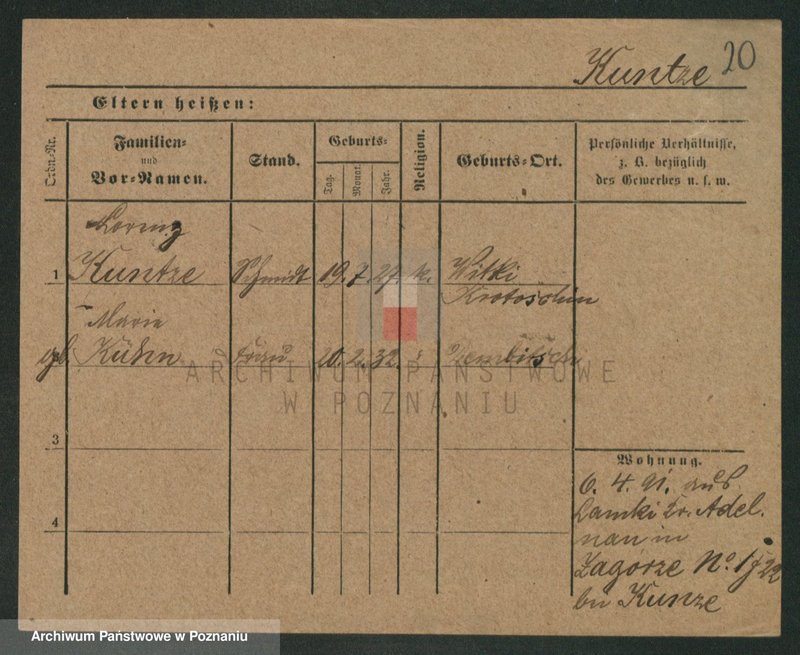 Kuntze 20
Eltern heißen:
Ordn.-Nr.
Familien-
und
Vor-Namen.
Stand.
Geburts-
Tag.
Monat.
Jahr.
Religion.
Geburts-Ort.
Persönliche Verhältnisse,
z. B. bezüglich
des Gewerbes u. s. w.
Lorenz
1 Kuntze Schmidt 19. 7. 27. k. Witki
Krotoschin
Marie
geb. Kühn Frau 20. 2. 32.
ARCHIWUM PAŃSTWOWE
W POZNANIU
3
Wohnung.
6. 4. 91. aus
Lamki Kr. Adel.
nau in
4
Zagorze No. 1/22
bei Kunze
Archiwum Państwowe w Poznaniu